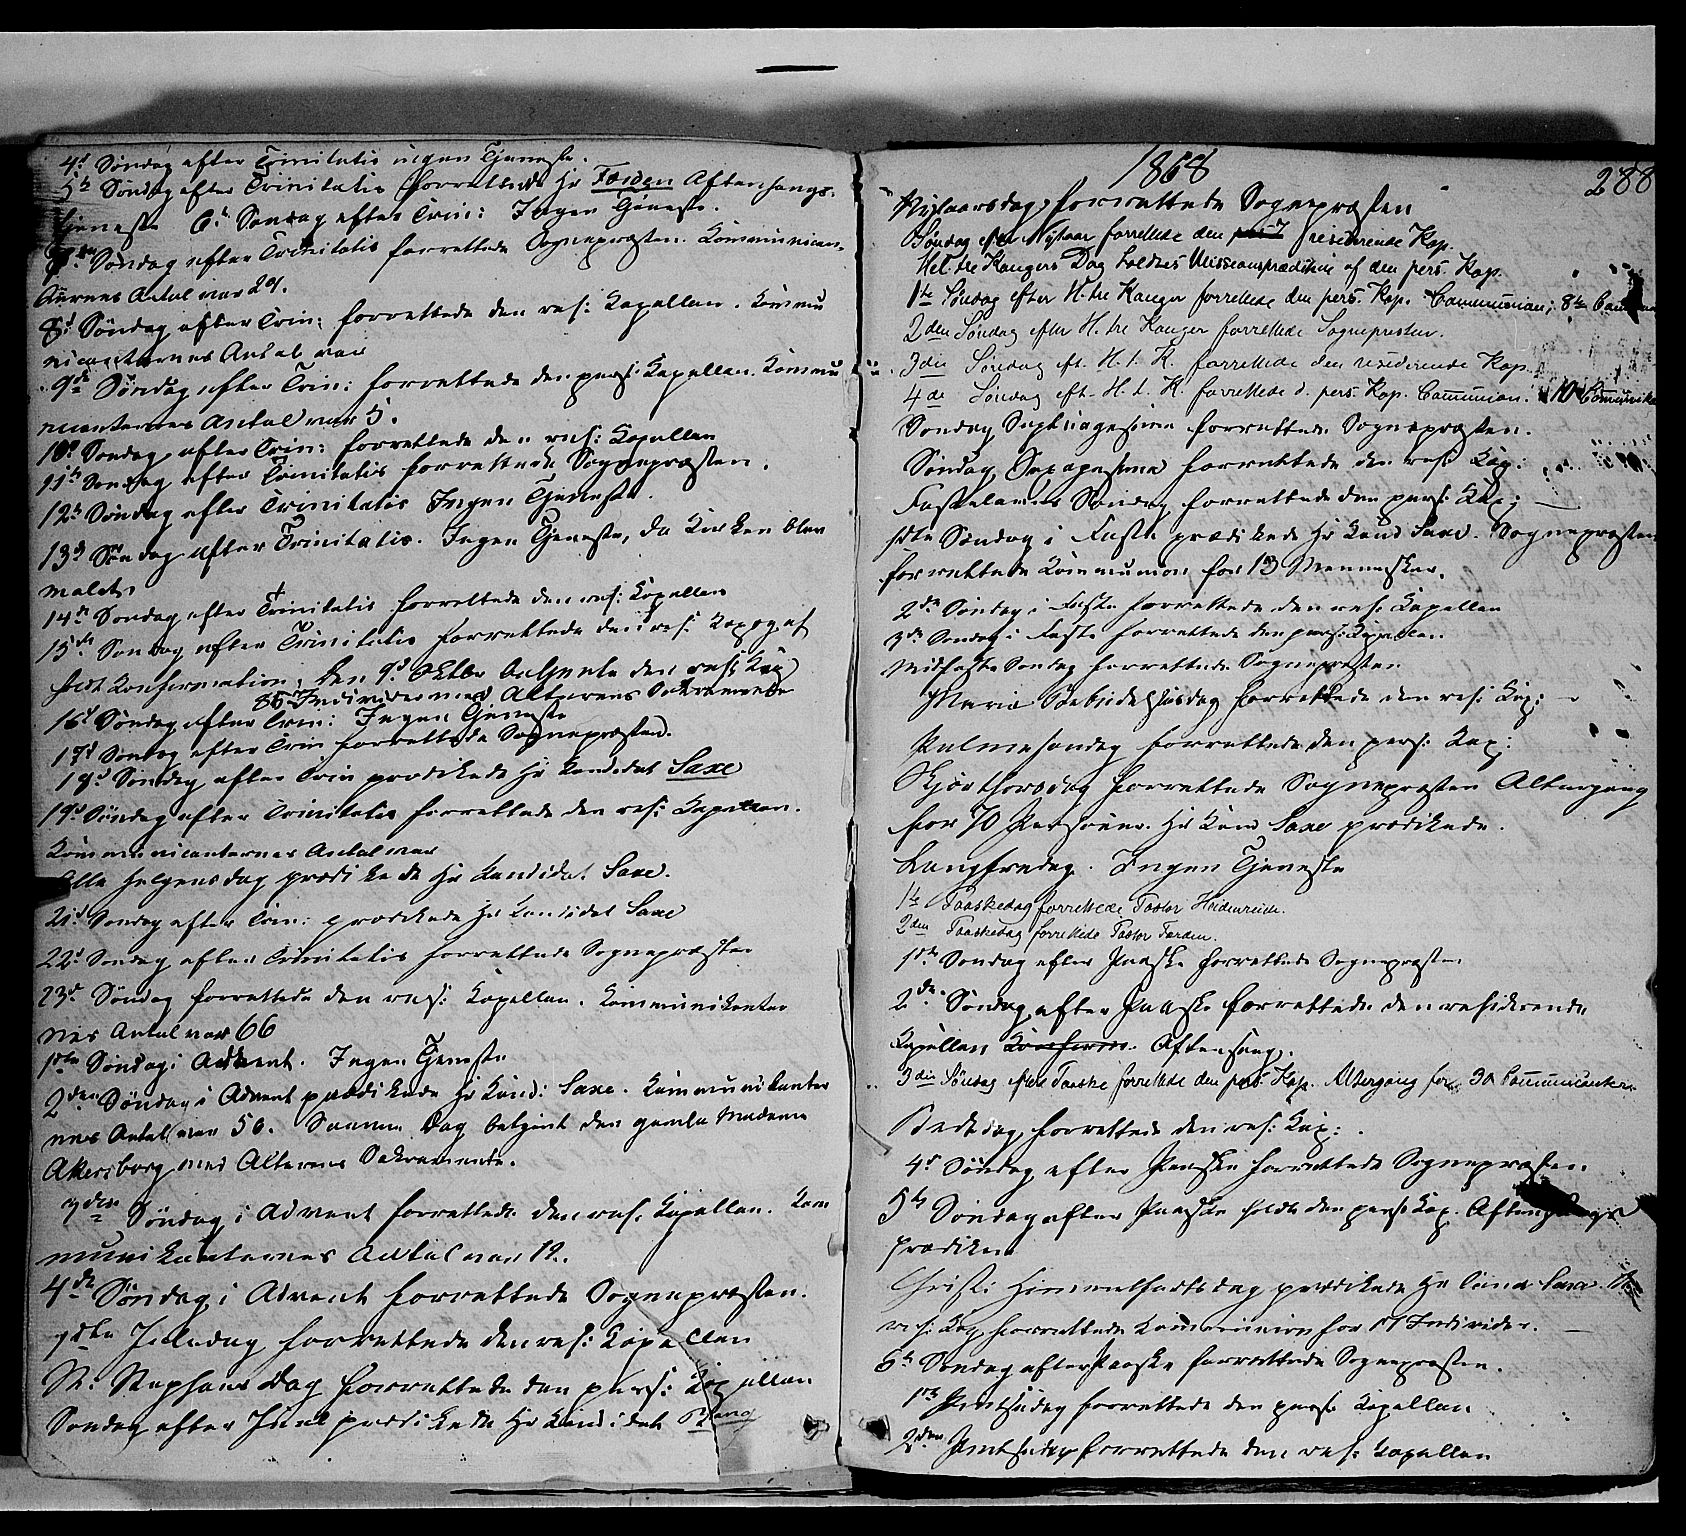 4d Søndag efter Trinitatis ingen Tjeneste.
5te Søndag efter Trinitatis forrettede Hr Færden Aftensangs-
tjeneste 6te Søndag efter Trin: Ingen Tjeneste.
7de Søndag efter Trinitatis forrettede Sognepræsten. Kommunican-
ternes Antal var 29.
8d Søndag efter Trin: forrettede den res: Kapellan. Kommu
nicanternes Antal var
9de Søndag efter Trin: forrettede den pers: Kapellan. Kommu
nicanternes Antal var 5.
10d Søndag efter Trin: forrettede den res: Kapellan
11te Søndag efter Trinitatis forrettede Sognepræsten.
12te Søndag efter Trinitatis Ingen Tjeneste.
13d Søndag efter Trinitatis. Ingen Tjeneste, da Kirken blev
malet.
14de Søndag efter Trinitatis forrettede den res: Kapellan
15de Søndag efter Trinitatis forrettede den res: Kap og af
holdt Konfirmation. Den 9d Oktbr betjente den res: Kap
85 Individer med Alterens Sakramente
16d Søndag efter Trin: Ingen Tjeneste
17d Søndag efter Trin forrettede Sognepræsten.
18d Søndag efter Trin prædikede Hr Kandidat Saxe
19d Søndag efter Trinitatis forrettede den res: Kapellan.
Kommunicanternes Antal var
Alle Helgensdag prædikede Hr Kandidat Saxe.
21d Søndag efter Trin: prædikede Hr Kandidat Saxe
22d Søndag efter Trinitatis forrettede Sognepræsten
23d Søndag forrettede den res: Kapellan. Kommunikanter
nes Antal var 66
1ste Søndag i Advent. Ingen Tjeneste
2den Søndag i Advent prædikede Hr Kand: Saxe. Kommunikanter
nes Antal var 50. Samme Dag betjent den gamle Madame
Akersborg med Alterens Sakramente.
3die Søndag i Advent forrettede den res: Kapellan. Kom
munikanternes Antal var 12.
4de Søndag i Advent forrettede Sognepræsten.
1ste Juledag forrettede den res: Kapellan
St: Stephans Dag forrettede den pers: Kapellan
Søndag efter Juul prædikede Hr Kandidat
1868
288
Nytaarsdag forrettede Sognepræsten
Søndag efter Nytaar forrettede den residerende Kap.
Hel. tre Kongers Dag holdtes Missionsprædiken af den pers. Kap.
1ste Søndag efter H. tre Konger forrettede den pers. Kap. Communion; 8te
2den Søndag efter H. tre Konger forrettede Sognepresten.
3die Søndag eft. H. t. K. forrettede den residerende Kap.
4de Søndag eft. H. t. K. forrettede d. pers. Kap. Communion. 10
Søndag Septuagesima forrettede Sognepræsten.
Søndag Sexagesima forrettede den res: Kap:
Fastelavns Søndag forrettede den pers: Kap:
1ste Søndag i Faste prædikede Hr Kand Saxe. Sognepræsten
forrettede Kommunion for 13 Mennesker.
2de Søndag i Faste forrettede den res: Kapellan
3de Søndag i Faste forrettede den pers: Kapellan
Midfaste Søndag forrettede Sognepræsten
Maria Bebudelsesdag forrettede den res: Kap:
Palmesøndag forrettede den pers: Kap:
Skjærthorsdag forrettede Sognepræsten Altergang
for 70 Personer. Hr Kand Saxe prædikede.
Langfredag. Ingen Tjeneste
1ste Paaskedag forrettede Pastor Heidenreich.
2den Paaskedag forrettede Pastor Færden.
1ste Søndag efter Paaske forrettede Sognepræsten
2de Søndag efter Paaske forrettede den residerende
Kapellan Konfirm. Aftensang.
3die Søndag efter Paaske forrettede den pers Kap. Altergang for 30 Communicanter.
Bededag forrettede den res: Kap:
4d Søndag efter Paaske forrettede Sognepræsten.
5te Søndag efter Paaske holdt den pers: Kap. Aftensangs
prædiken
Christi Himmelfartsdag prædikede Hr Cand Saxe.
res: Kap forrettede Kommunion for 17 Individer.
6te Søndag efter Paaske forrettede Sognepræsten.
1ste Pintsedag forrettede den pers: Kapellan
2den Pintsedag forrettede den res: Kapellan